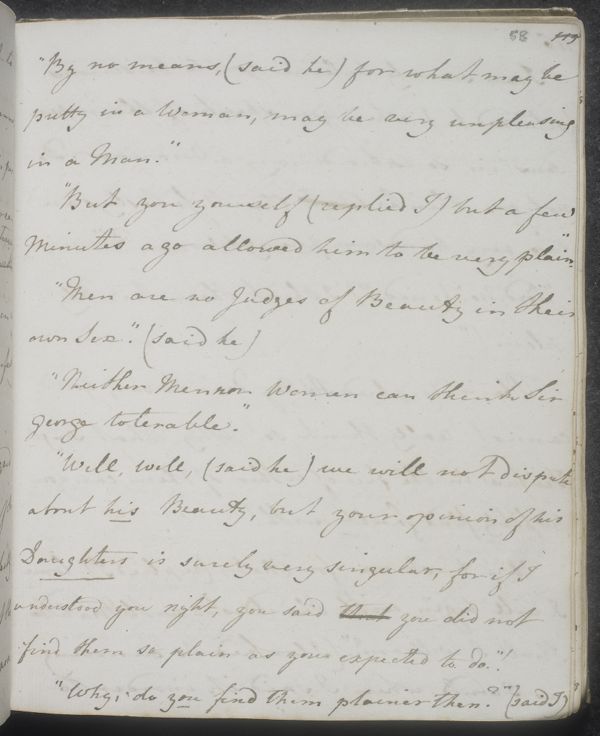 58 115
"By no means, (said he) for what may be
pretty in a Woman, may be very unpleasing
in a Man."
"But you yourself (replied I) but a few
Minutes ago allowed him to be very plain."
"Men are no Judges of Beauty in their
own Sex". (said he)
"Neither Men nor Women can think Sir
George tolerable."
"Well, well, (said he) we will not dispute
about his Beauty, but your opinion of his
Daughters is surely very singular, for if I
understood you right, you said that you did not
find them so plain as you expected to do."!
"Why, do you find them plainer then?" (said I)